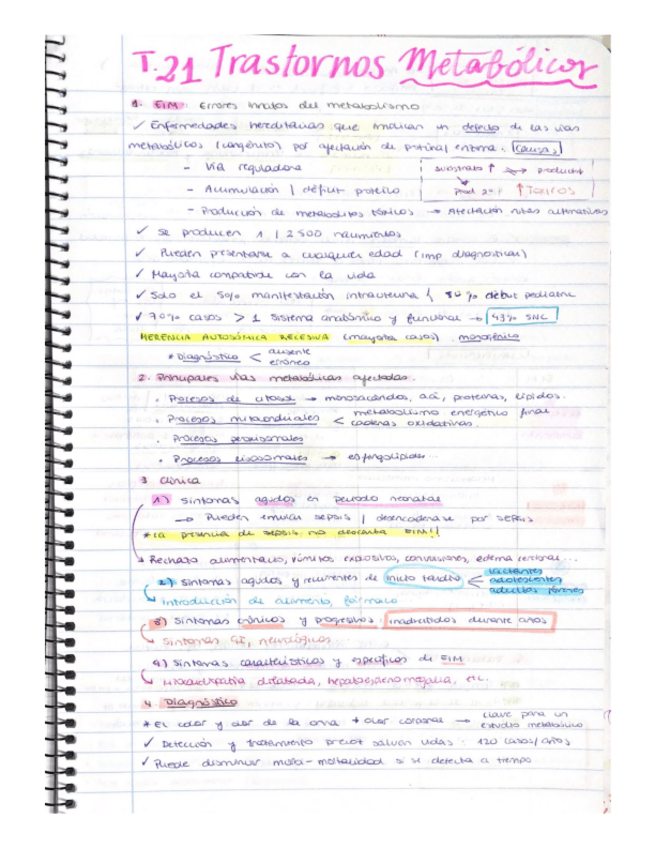 T.21 Trastornos Metabólicos
1. EIM: Errores innatos del metabolismo
✓ Enfermedades hereditarias que implican un defecto de las vías
metabólicas (congénito) por afectación de proteína/enzima. Causas
- Vía reguladora
substrato ↑ producto
- Acumulación / déficit proteico
Prod 2º ↑ Tóxicos
- Producción de metabolitos tóxicos → Afectación rutas alternativas
✓ Se producen 1/2500 nacimientos
✓ Pueden presentarse a cualquier edad (imp diagnosticar)
✓ Mayoría compatible con la vida
✓ Solo el 5% manifestación intrauterina / 50% debut pediatría
✓ 70% casos > 1 sistema anatómico y funcional → 43% SNC
HERENCIA AUTOSÓMICA RECESIVA (mayoría casos). monogénico
* Diagnóstico < ausente
erróneo
2. Principales vías metabólicas afectadas.
• Procesos de citosol → monosacáridos, aa, proteínas, lípidos.
• Procesos mitocondriales < metabolismo energético final
cadenas oxidativas.
• Procesos peroxisomales
• Procesos lisosomales → esfingolípidos...
3. Clínica
1) Síntomas agudos en periodo neonatal
→ Pueden emular sepsis / desencadenarse por sepsis
* La presencia de sepsis no descarta EIM!!
→ Rechazo alimentario, vómitos explosivos, convulsiones, edema cerebral...
2) Síntomas agudos y recurrentes de inicio tardío < lactantes
adolescentes
adultos jóvenes
Introducción de alimento, fármaco
3) Síntomas crónicos y progresivos: inadvertidos durante años
Síntomas GI, neurológicos
4) Síntomas característicos y específicos de EIM
Miocardiopatía dilatada, hepatoesplenomegalia, etc.
4. Diagnóstico
* El color y olor de la orina + olor corporal → clave para un
estudio metabólico
✓ Detección y tratamiento precoz salvan vidas: 120 casos/años
✓ Puede disminuir morbi-mortalidad si se detecta a tiempo